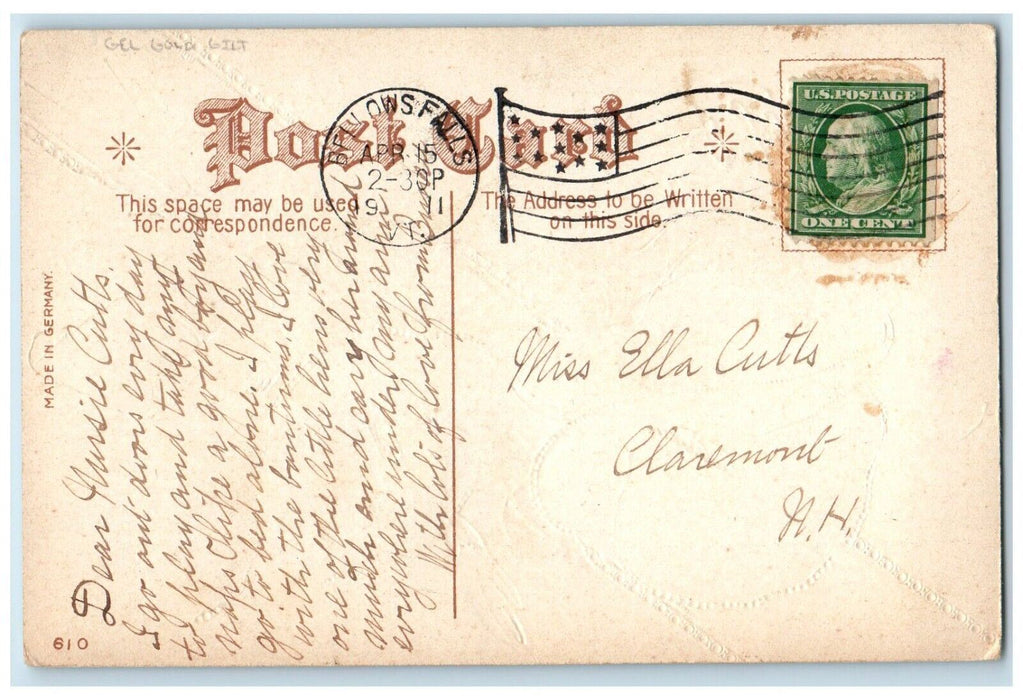 GEL GOLD GILT
Post Card
BELLOWS FALLS
APR 15
2-30P
1911
VT.
U.S. POSTAGE
ONE CENT
This space may be used
for correspondence.
The Address to be Written
on this side.
MADE IN GERMANY.
Dear Nursie Cutts.
I go out doors every day
to play and take my
naps I like a good boy and
go to bed alone. I play
with the bantims. I love
one of the little hens very
much and carry her around
everywhere under my arm.
With lots of love from
Miss Ella Cutts
Claremont
N.H.
610